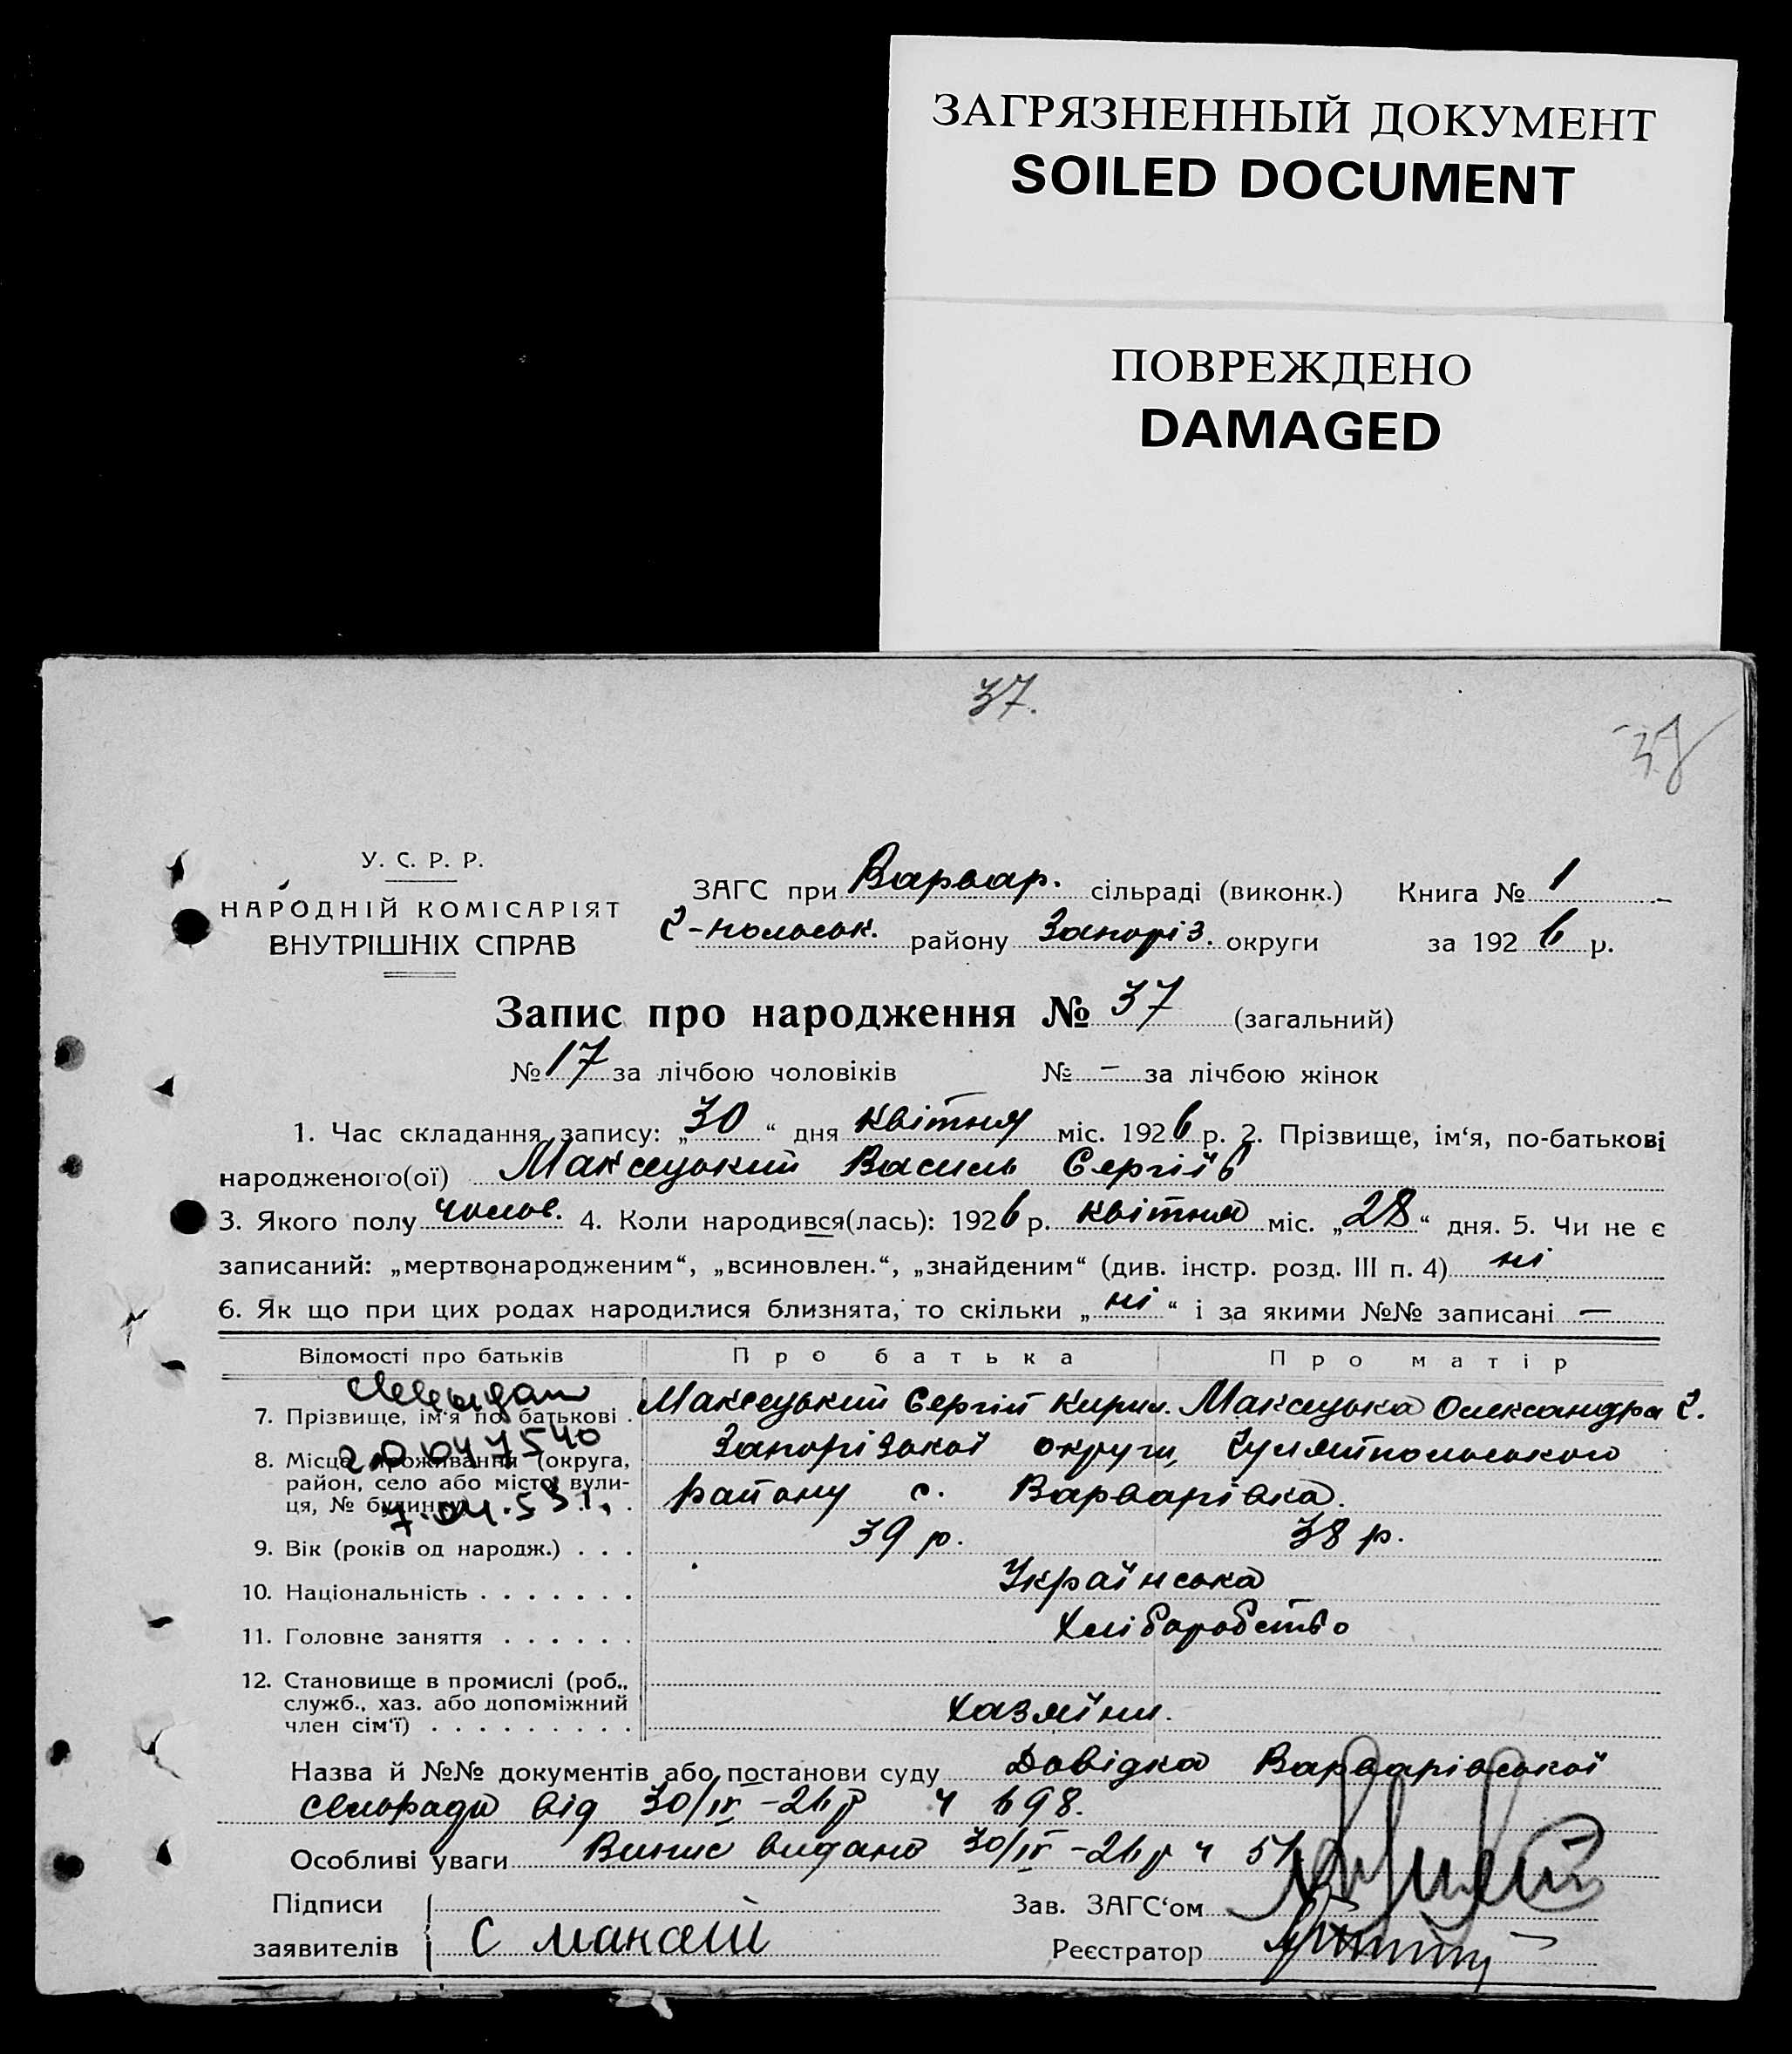 ЗАГРЯЗНЕННЫЙ ДОКУМЕНТ
SOILED DOCUMENT
ПОВРЕЖДЕНО
DAMAGED
37.
37
У. С. Р. Р.
НАРОДНІЙ КОМІСАРІЯТ
ВНУТРІШНІХ СПРАВ
ЗАГС при Варвар. сільраді (виконк.) Книга № 1
Г-польськ. району Запоріз. округи за 1926 р.
Запис про народження № 37 (загальний)
№ 17 за лічбою чоловіків № — за лічбою жінок
1. Час складання запису: „30“ дня квітня міс. 1926 р. 2. Прізвище, ім‘я, по-батькові
народженого(ої) Максецький Василь Сергіїв
3. Якого полу чолов. 4. Коли народився(лась): 1926 р. квітня міс. „28“ дня. 5. Чи не є
записаний: „мертвонародженим“, „всиновлен.“, „знайденим“ (див. інстр. розд. III п. 4) ні
6. Як що при цих родах народилися близнята, то скільки „ні“ і за якими №№ записані —
Відомості про батьків Про батька Про матір
7. Прізвище, ім‘я по батькові . Максецький Сергій Кирил. Максецька Олександра Г.
8. Місце проживання (округа, район, село або місто, вулиця, № будинку) . Запорізької округи, Гуляйпольського
району с. Варварівка.
7.04.53 г.
9. Вік (років од народж.) . . . 39 р. 38 р.
10. Національність . . . . . . . Українська
11. Головне заняття . . . . . . Хліборобство
12. Становище в промислі (роб., служб., хаз. або допоміжний член сім‘ї) . . . . . . . . . Хазяїни.
Назва й №№ документів або постанови суду Довідка Варварівської
сільради від 30/IV-26 р ч 698.
Особливі уваги Випис видано 30/IV-26 р ч 51
Підписи Зав. ЗАГС‘ом
заявителів С Реєстратор